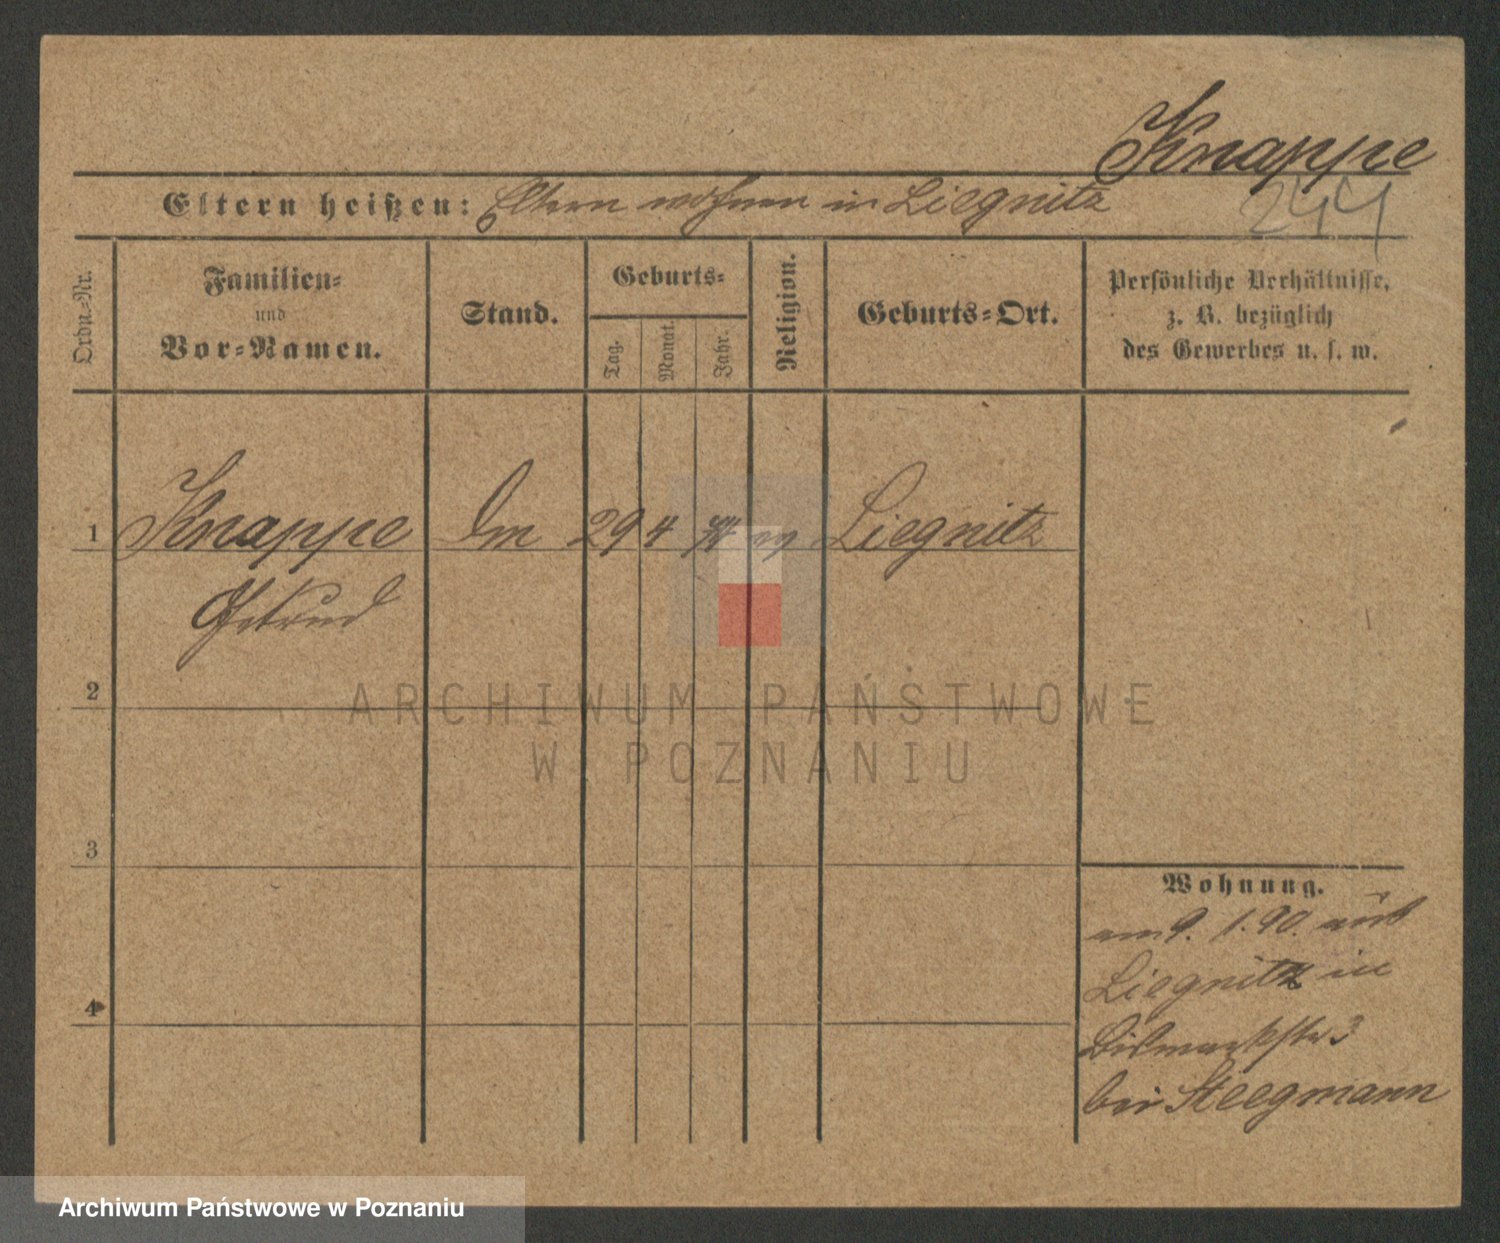 Knappe
244
Eltern heißen: Eltern wohnen in Liegnitz
Ordn.-Nr.
Familien-
und
Vor-Namen.
Stand.
Geburts-
Tag.
Monat.
Jahr.
Religion.
Geburts-Ort.
Persönliche Verhältnisse,
z. B. bezüglich
des Gewerbes u. s. w.
1 Knappe 29 4 Liegnitz
Getrud
2
3
4
ARCHIWUM PAŃSTWOWE
W POZNANIU
Wohnung.
am 9. 1. 90. aus
Liegnitz in
Bismarkstr 3
bei Steegmann
Archiwum Państwowe w Poznaniu